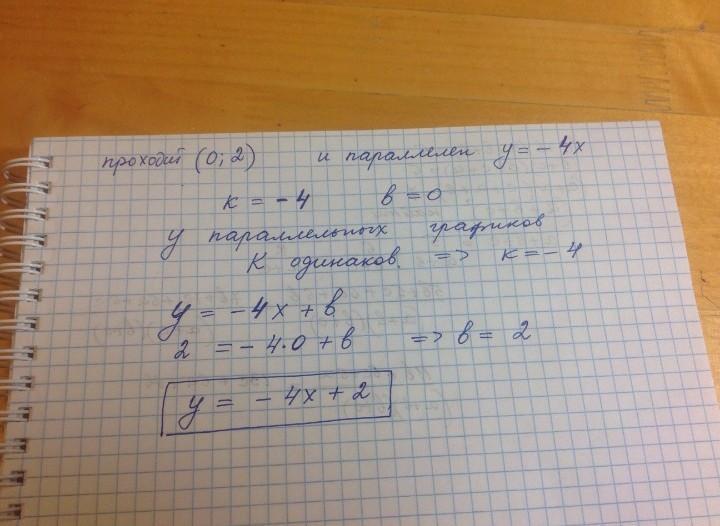 проходит (0; 2) и параллелен y = - 4x
к = - 4 в = 0
у параллельных графиков
К одинаков. => к = - 4
y = - 4x + в
2 = - 4·0 + в => в = 2
y = - 4x + 2